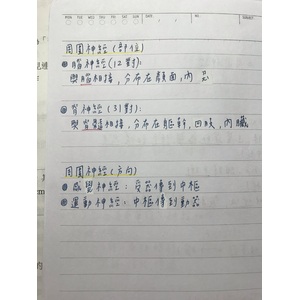 MON TUE WED THU FRI SAT SUN
DATE
NO.
SUBJECT
周圍神經(部位)
腦神經(12對):
與腦相接,分布在顏面,內
脊神經(31對):
與脊髓相接,分布在軀幹,四肢,內臟
周圍神經(方向)
感覺神經:受器傳到中樞
運動神經:中樞傳到動器